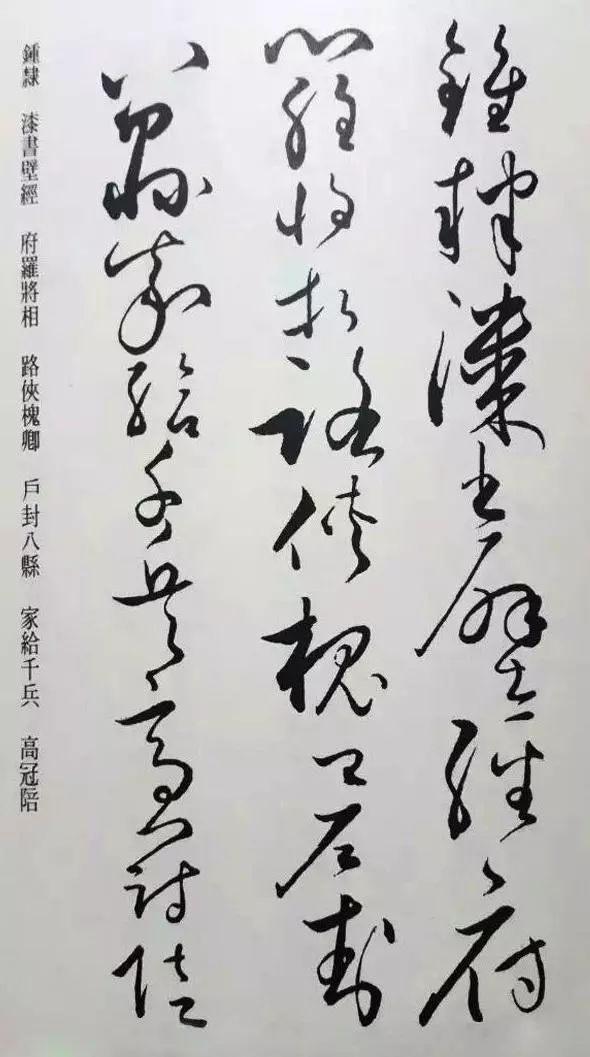 鍾隸漆書壁經府
羅將相路俠槐卿戶封
八縣家給千兵高冠陪
鍾隸 漆書壁經 府羅將相 路俠槐卿 戶封八縣 家給千兵 高冠陪